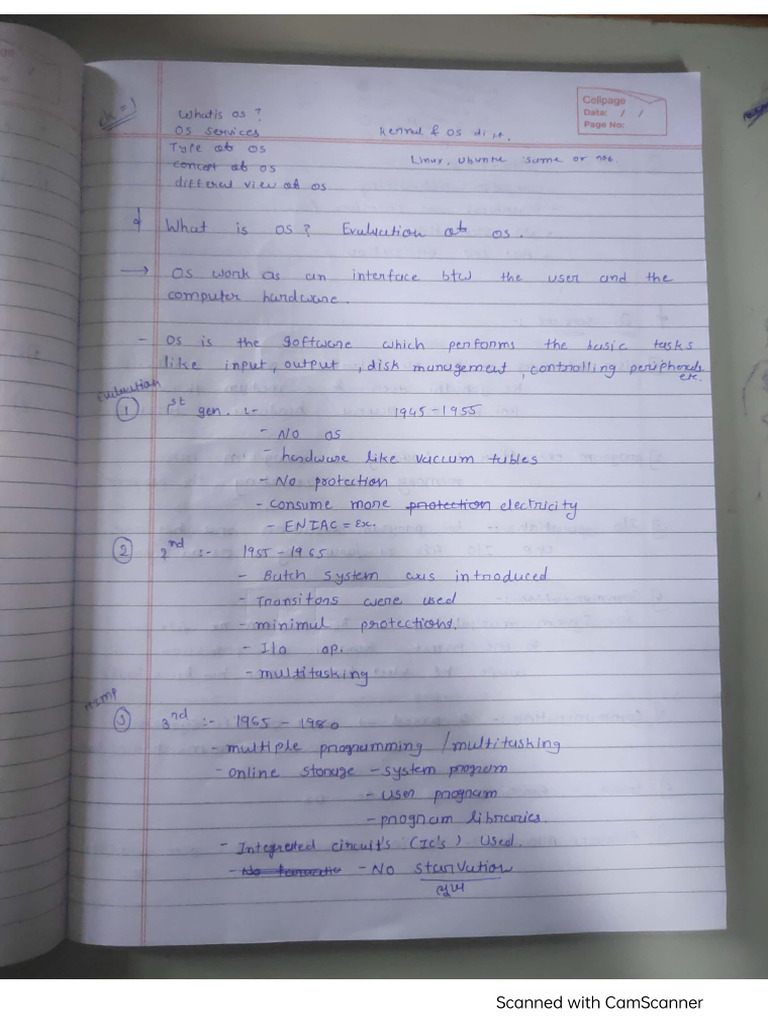 Cellpage
Date: / /
Page No:
What is os ?
OS services
Kernel & OS diff.
Type of OS
Linux, Ubuntu same or not.
concept of OS
different view of os
What is os? Evaluation of os.
→ OS work as an interface btw the user and the
computer hardware.
- OS is the software which performs the basic tasks
like input, output, disk management, controlling peripherals
etc.
Evaluation
① 1st gen. :- 1945-1955
- No os
- hardware like vaccum tubles
- No protection
- consume more protection electricity
- ENIAC = Ex.
② 2nd :- 1955-1965
- Batch system was introduced
- Transitors were used
- minimul protections.
- I/o op.
- multitasking
③ 3rd :- 1965 - 1980
- multiple programming / multitasking
- online storage - system program
- user program
- program libraries.
- Integrated circuit's (IC's) Used.
- No - No starvation
ભૂખ
Scanned with CamScanner